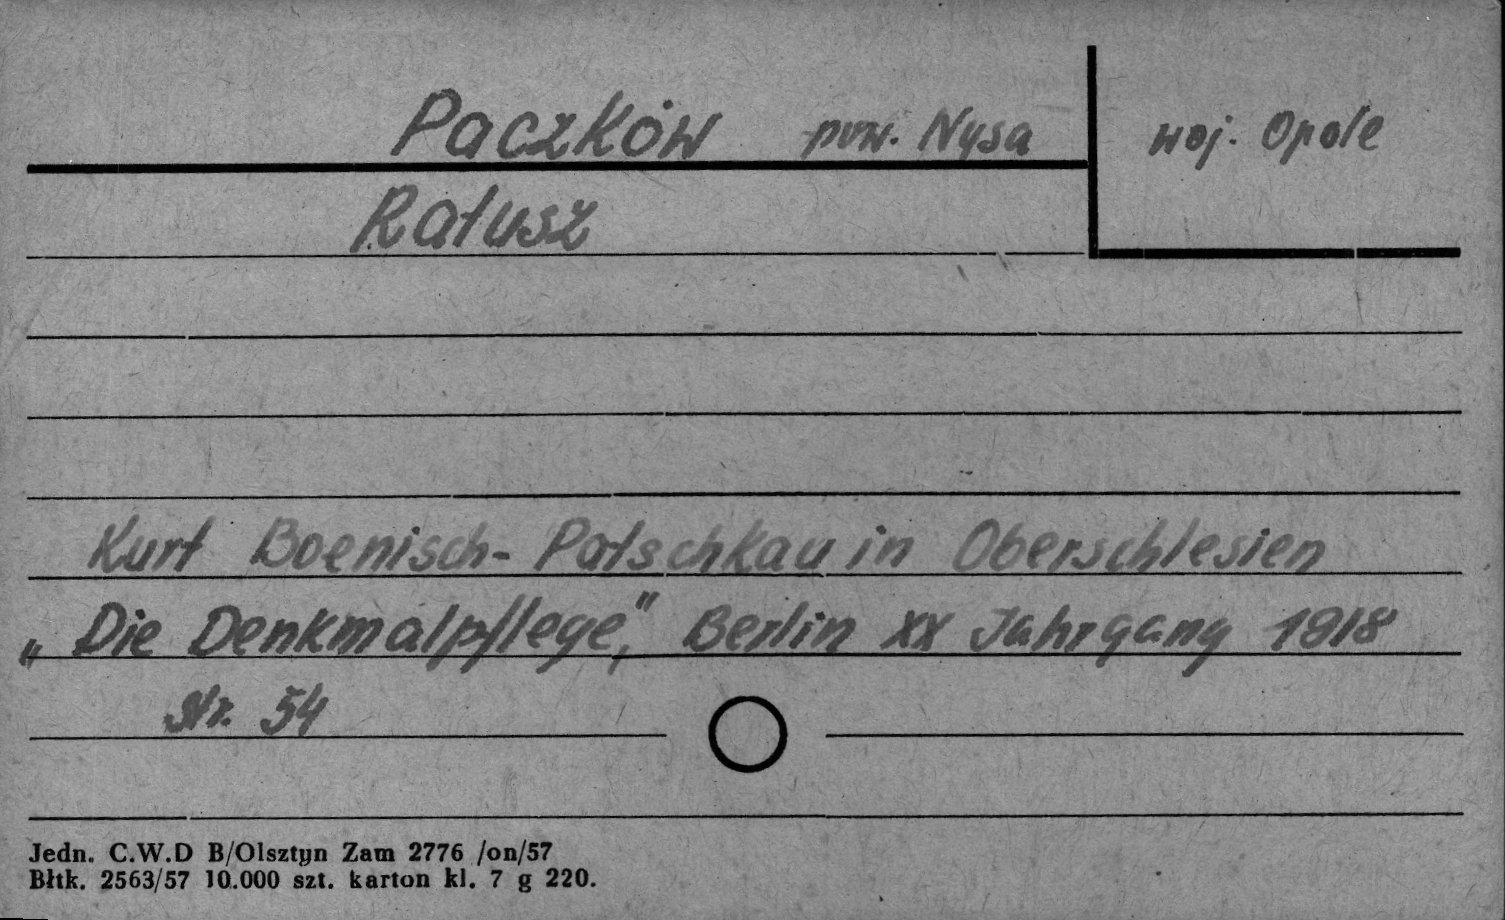 Paczków pow. Nysa woj. Opole
Ratusz
Kurt Boenisch- Patschkau in Oberschlesien
„Die Denkmalpflege”, Berlin XX Jahrgang 1918
str. 54
Jedn. C.W.D B/Olsztyn Zam 2776 /on/57
Błtk. 2563/57 10.000 szt. karton kl. 7 g 220.